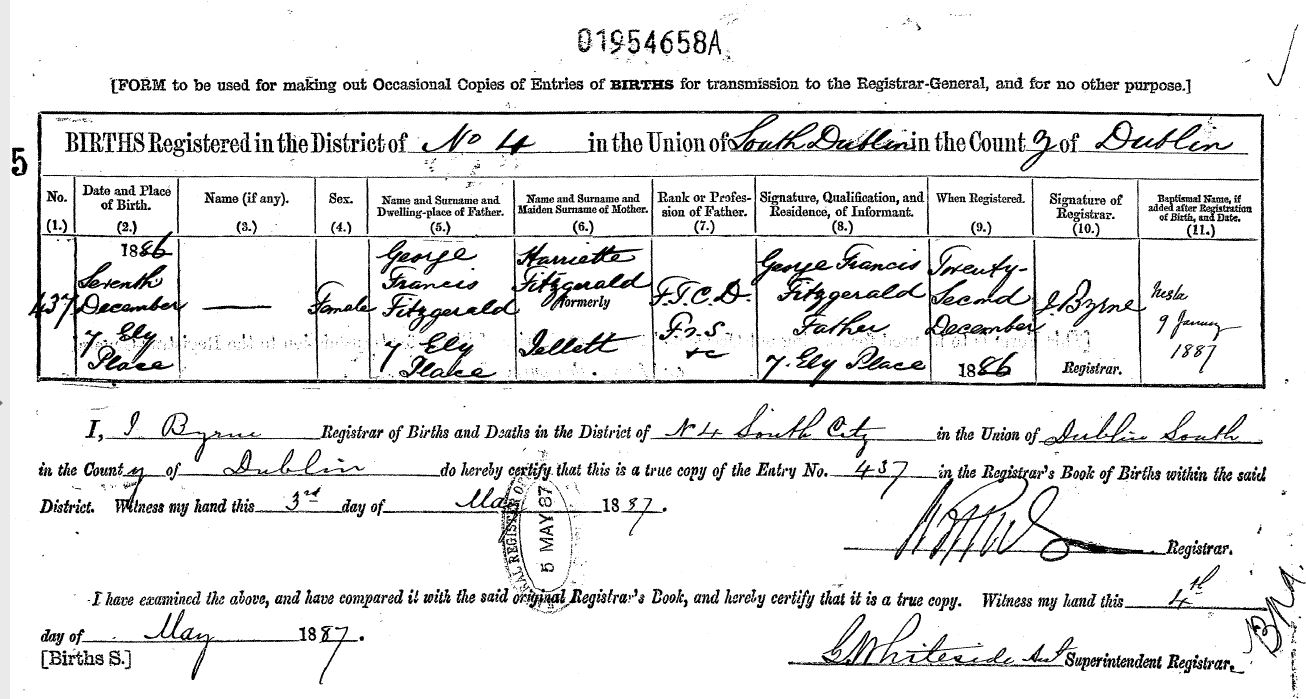 01954658A
[FORM to be used for making out Occasional Copies of Entries of BIRTHS for transmission to the Registrar-General, and for no other purpose.]
5
BIRTHS Registered in the District of No 4 in the Union of South Dublin in the County of Dublin
No. (1.)
Date and Place of Birth. (2.)
Name (if any). (3.)
Sex. (4.)
Name and Surname and Dwelling-place of Father. (5.)
Name and Surname and Maiden Surname of Mother. (6.)
Rank or Profession of Father. (7.)
Signature, Qualification, and Residence, of Informant. (8.)
When Registered. (9.)
Signature of Registrar. (10.)
Baptismal Name, if added after Registration of Birth, and Date. (11.)
437
1886
Seventh
December
7 Ely
Place
—
Female
George
Francis
Fitzgerald
7 Ely
Place
Harriette
Fitzgerald
formerly
Jellett
F.T.C.D.
F.R.S
&c
George Francis
Fitzgerald
Father
7. Ely Place
Twenty-
Second
December
1886
J. Byrne
Registrar.
Nesta
9 January
1887
I, J Byrne Registrar of Births and Deaths in the District of No 4 South City in the Union of Dublin South
in the County of Dublin do hereby certify that this is a true copy of the Entry No. 437 in the Registrar's Book of Births within the said
District. Witness my hand this 3rd day of May 1887.
Registrar.
5 MAY 87
I have examined the above, and have compared it with the said original Registrar's Book, and hereby certify that it is a true copy. Witness my hand this 4th
day of May 1887.
[Births S.]
G Whiteside Asst Superintendent Registrar.